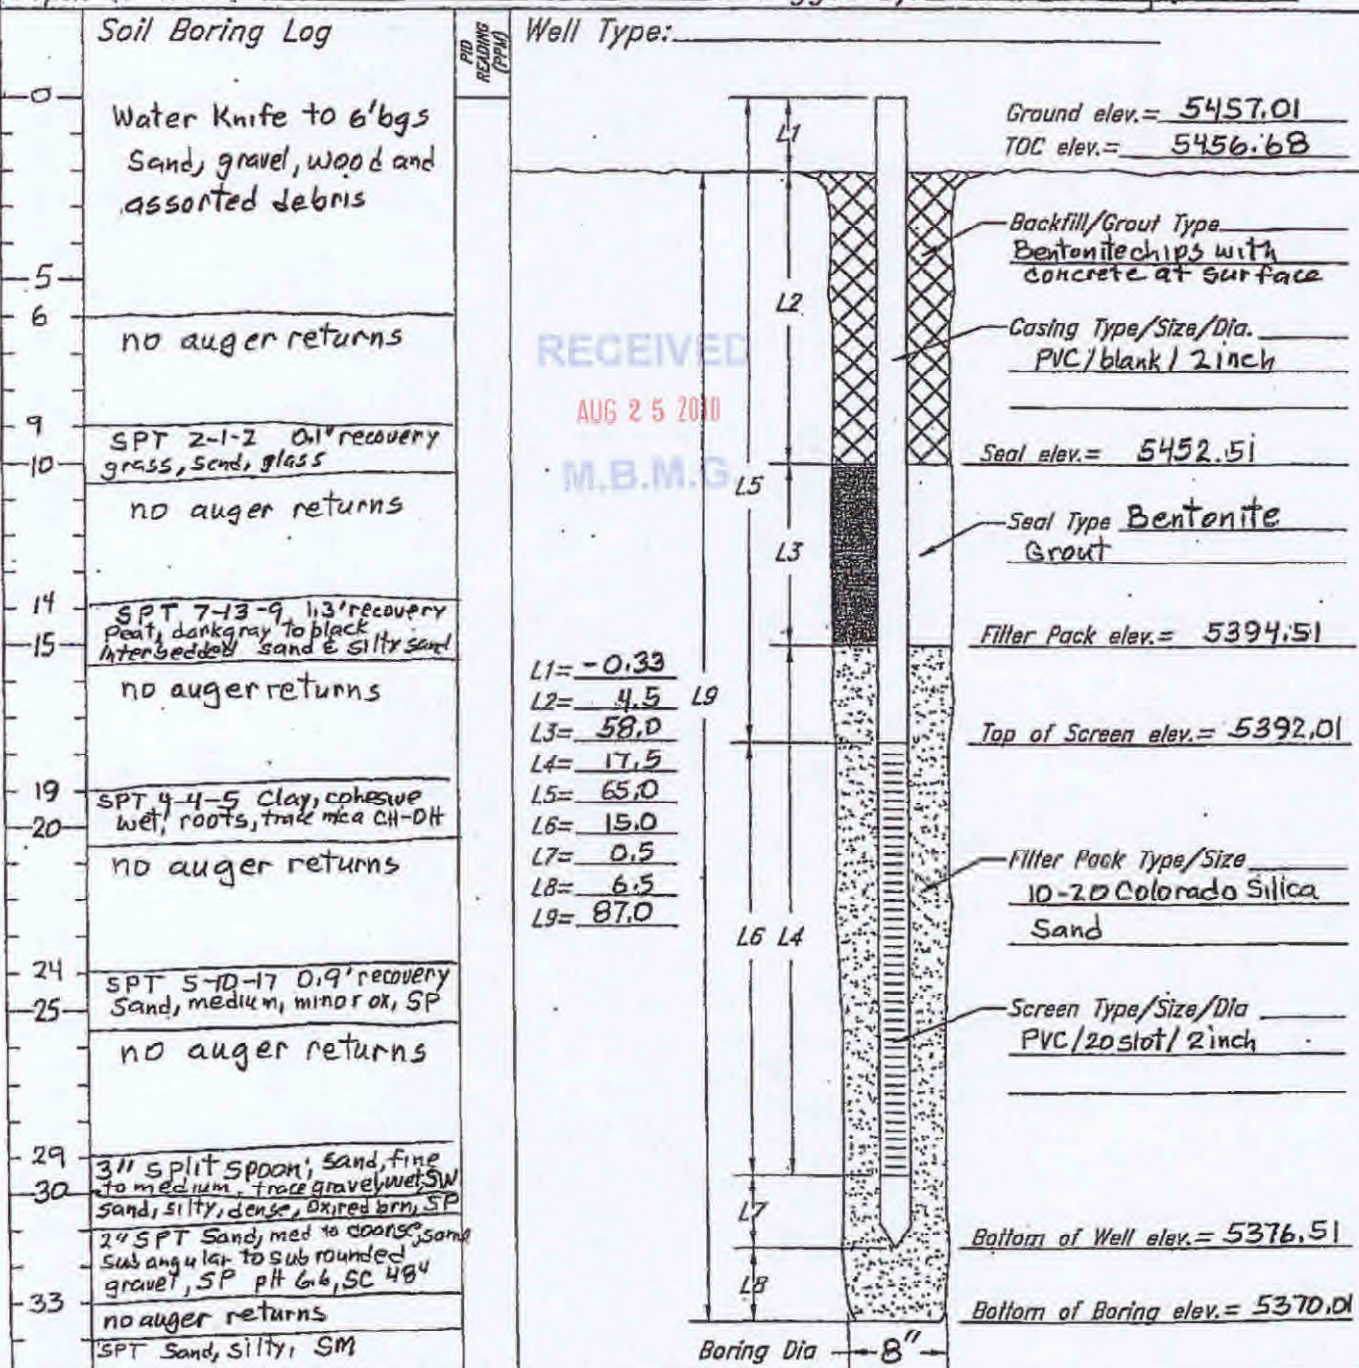 Soil Boring Log
PID READING (PPM)
Well Type:
0
Water Knife to 6'bgs
Sand, gravel, wood and
assorted debris
5
6
no auger returns
9
SPT 2-1-2 0.1' recovery
10
grass, sand, glass
no auger returns
14
SPT 7-13-9, 1.3' recovery
Peat, dark gray to black
15
interbedded sand & silty sand
no auger returns
19
SPT 4-4-5 Clay, cohesive
20
wet, roots, trace mica CH-OH
no auger returns
24
SPT 5-10-17 0.9' recovery
25
Sand, medium, minor ox, SP
no auger returns
29
3" split spoon; sand, fine
30
to medium, trace gravel, wet, SW
sand, silty, dense, ox, red brn, SP
2" SPT Sand, med to coarse, some
sub angular to sub rounded
gravel, SP pH 6.6, SC 484
33
no auger returns
SPT Sand, silty, SM
RECEIVED
AUG 25 2010
M.B.M.G.
L1= -0.33
L2= 4.5
L3= 58.0
L4= 17.5
L5= 65.0
L6= 15.0
L7= 0.5
L8= 6.5
L9= 87.0
L1
L2
L5
L3
L9
L6 L4
L7
L8
Ground elev.= 5457.01
TOC elev.= 5456.68
Backfill/Grout Type
Bentonite chips with
concrete at surface
Casing Type/Size/Dia.
PVC/blank/2inch
Seal elev.= 5452.51
Seal Type Bentonite
Grout
Filter Pack elev.= 5394.51
Top of Screen elev.= 5392.01
Filter Pack Type/Size
10-20 Colorado Silica
Sand
Screen Type/Size/Dia
PVC/20 slot/2 inch
Bottom of Well elev.= 5376.51
Bottom of Boring elev.= 5370.01
Boring Dia 8"